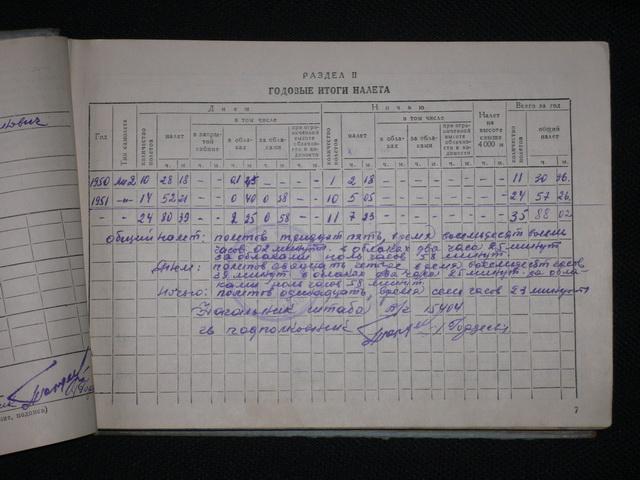 ович
РАЗДЕЛ II
ГОДОВЫЕ ИТОГИ НАЛЕТА
Год
Тип самолета
Днем
Ночью
Налет на высоте свыше 4 000 м
Всего за год
количество полетов
налет
в том числе
в закрытой кабине
в облаках
за облаками
при ограниченной высоте облачности и видимости
количество полетов
налет
в том числе
в облаках
за облаками
при ограниченной высоте облачности и видимости
количество полетов
общий налет
ч. м. ч. м. ч. м. ч. м. ч. м. ч. м. ч. м. ч. м. ч. м. ч. м. ч. м.
1950 10 28 18 – – 01 45 – – – – 1 2 18 – – – – – – – – 11 30 36.
1951 –"– 14 52 21 – – 0 40 0 58 – – 10 5 05 – – – – – – – – 24 57 26.
– – 24 80 39 – – 2 25 0 58 – – 11 7 23 – – – – – – – – 35 88 02
Общий налет: полетов тридцать пять, время восемьдесят восемь
часов 02 минут. в облаках два часа 25 минут
за облаками ноль часов 58 минут.
Днем: полетов двадцать четыре, время восемьдесят часов
39 минут в облаках два часа 25 минут за обла-
ками ноль часов 58 минут.
Ночью: полетов одинадцать, время семь часов 23 минут
Начальник штаба в/ч 15404
гв подполковник / Гордеев
7
, подпись)